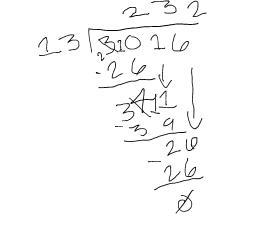 232
13 3016
2 1
- 26
3 4 11
- 39
26
- 26
0